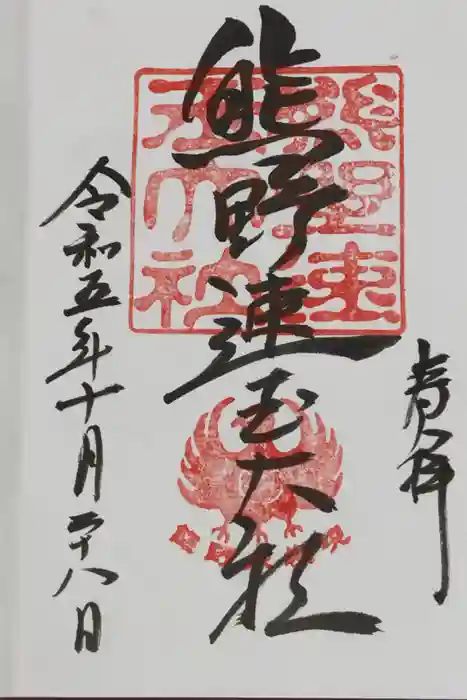 奉拝
熊野速
玉大社
熊野速玉大社
令和五年十月二十八日